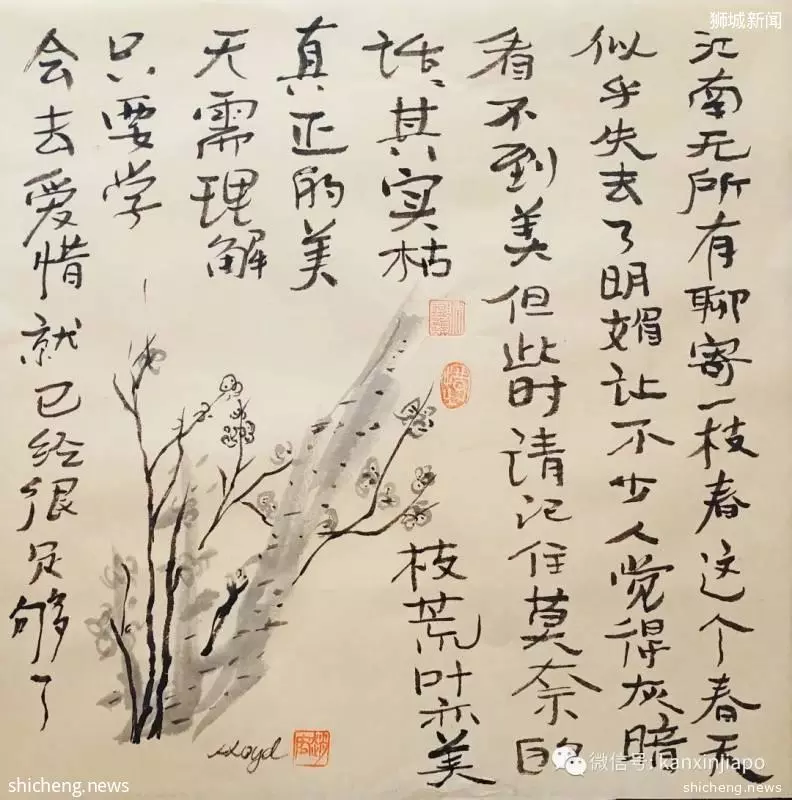 狮城新闻
江南无所有聊寄一枝春这个春天
似乎失去了明媚让不少人觉得灰暗
看不到美但此时请记住莫奈的
话:其实枯
枝荒叶亦美
真正的美
无需理解
只要学
会去爱惜就已经很足够了
微信号: kanxinjiapo
shicheng.news
shicheng.news